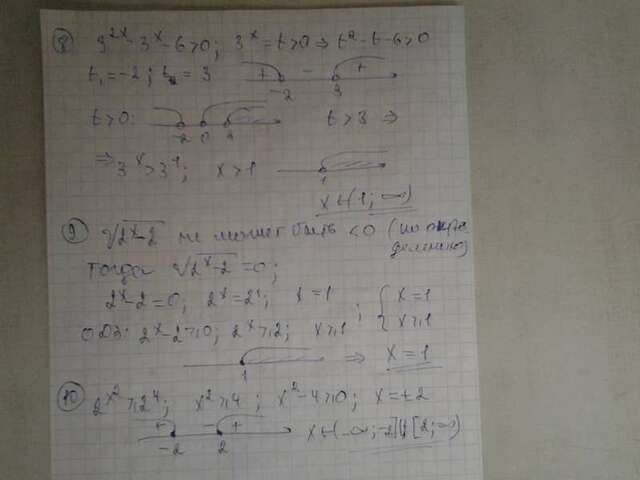 8) 3^2x - 3^x - 6 > 0; 3^x = t > 0 ⇒ t² - t - 6 > 0
t₁ = -2; t₂ = 3 + - +
-2 3
t > 0: t > 3 ⇒
-2 0 3
⇒ 3^x > 3^1; x > 1
1
x ∈ (1; ∞)
9) √2^x-2 не может быть < 0 (по опре
делению)
Тогда √2^x-2 = 0;
2^x - 2 = 0; 2^x = 2^1; x = 1 ; { x = 1
ОДЗ: 2^x - 2 ≥ 0; 2^x ≥ 2; x ≥ 1 x ≥ 1
1 ⇒ x = 1
10) 2^x² ≥ 2^4; x² ≥ 4; x² - 4 ≥ 0; x = ±2
+ - + x ∈ (-∞; -2] U [2; ∞)
-2 2